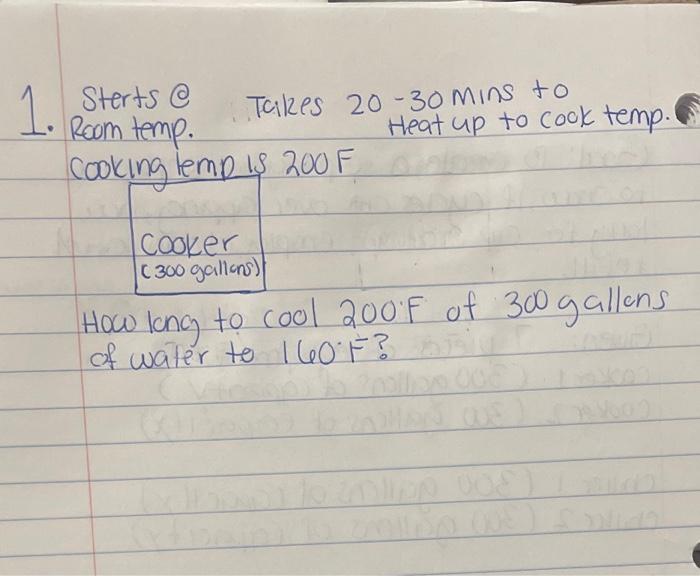 1. Sterts @ Takes 20-30 mins to
Room temp. Heat up to cook temp.
Cooking temp is 200F
Cooker
(300 gallons)
How long to cool 200°F of 300 gallons
of water to 160°F?